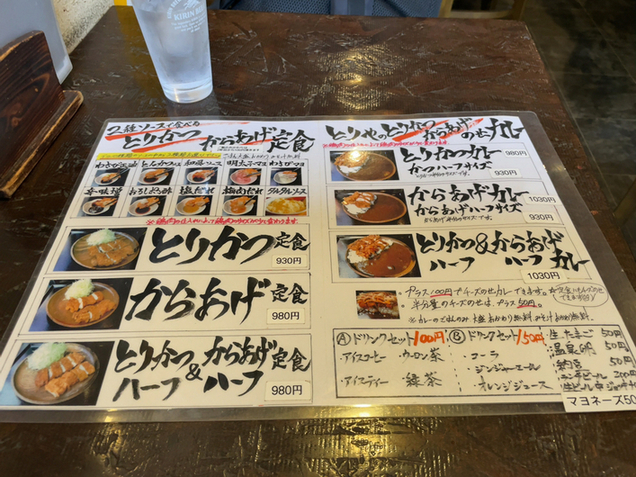 KIRIN
2種ソースで食べる
とりかつ からあげ定食
わさび醤油 とんかつソース 和風ソース 明太子マヨ わさびマヨ
辛味噌 おろしぽん酢 塩だれ 梅肉だれ タルタルソース
とりかつ定食
930円
からあげ定食
980円
とりかつハーフ&からあげハーフ定食
980円
とりやのとりかつからあげのせカレー
とりかつカレー
980円
かつハーフサイズ
からあげカレー
1030円
からあげハーフサイズ
930円
とりかつ&からあげ
ハーフ ハーフ カレー
1030円
・プラス100円でチーズのせカレーできます。
・半分量のチーズのせは、プラス50円。
※カレーのごはんのみ 大盛 おかわり無料
Ⓐドリンクセット100円
・アイスコーヒー ・ウーロン茶
・アイスティー 緑茶
Ⓑドリンクセット150円
・コーラ
・ジンジャーエール
・オレンジジュース
生たまご 50円
温泉卵 50円
納豆 50円
マヨネーズ50